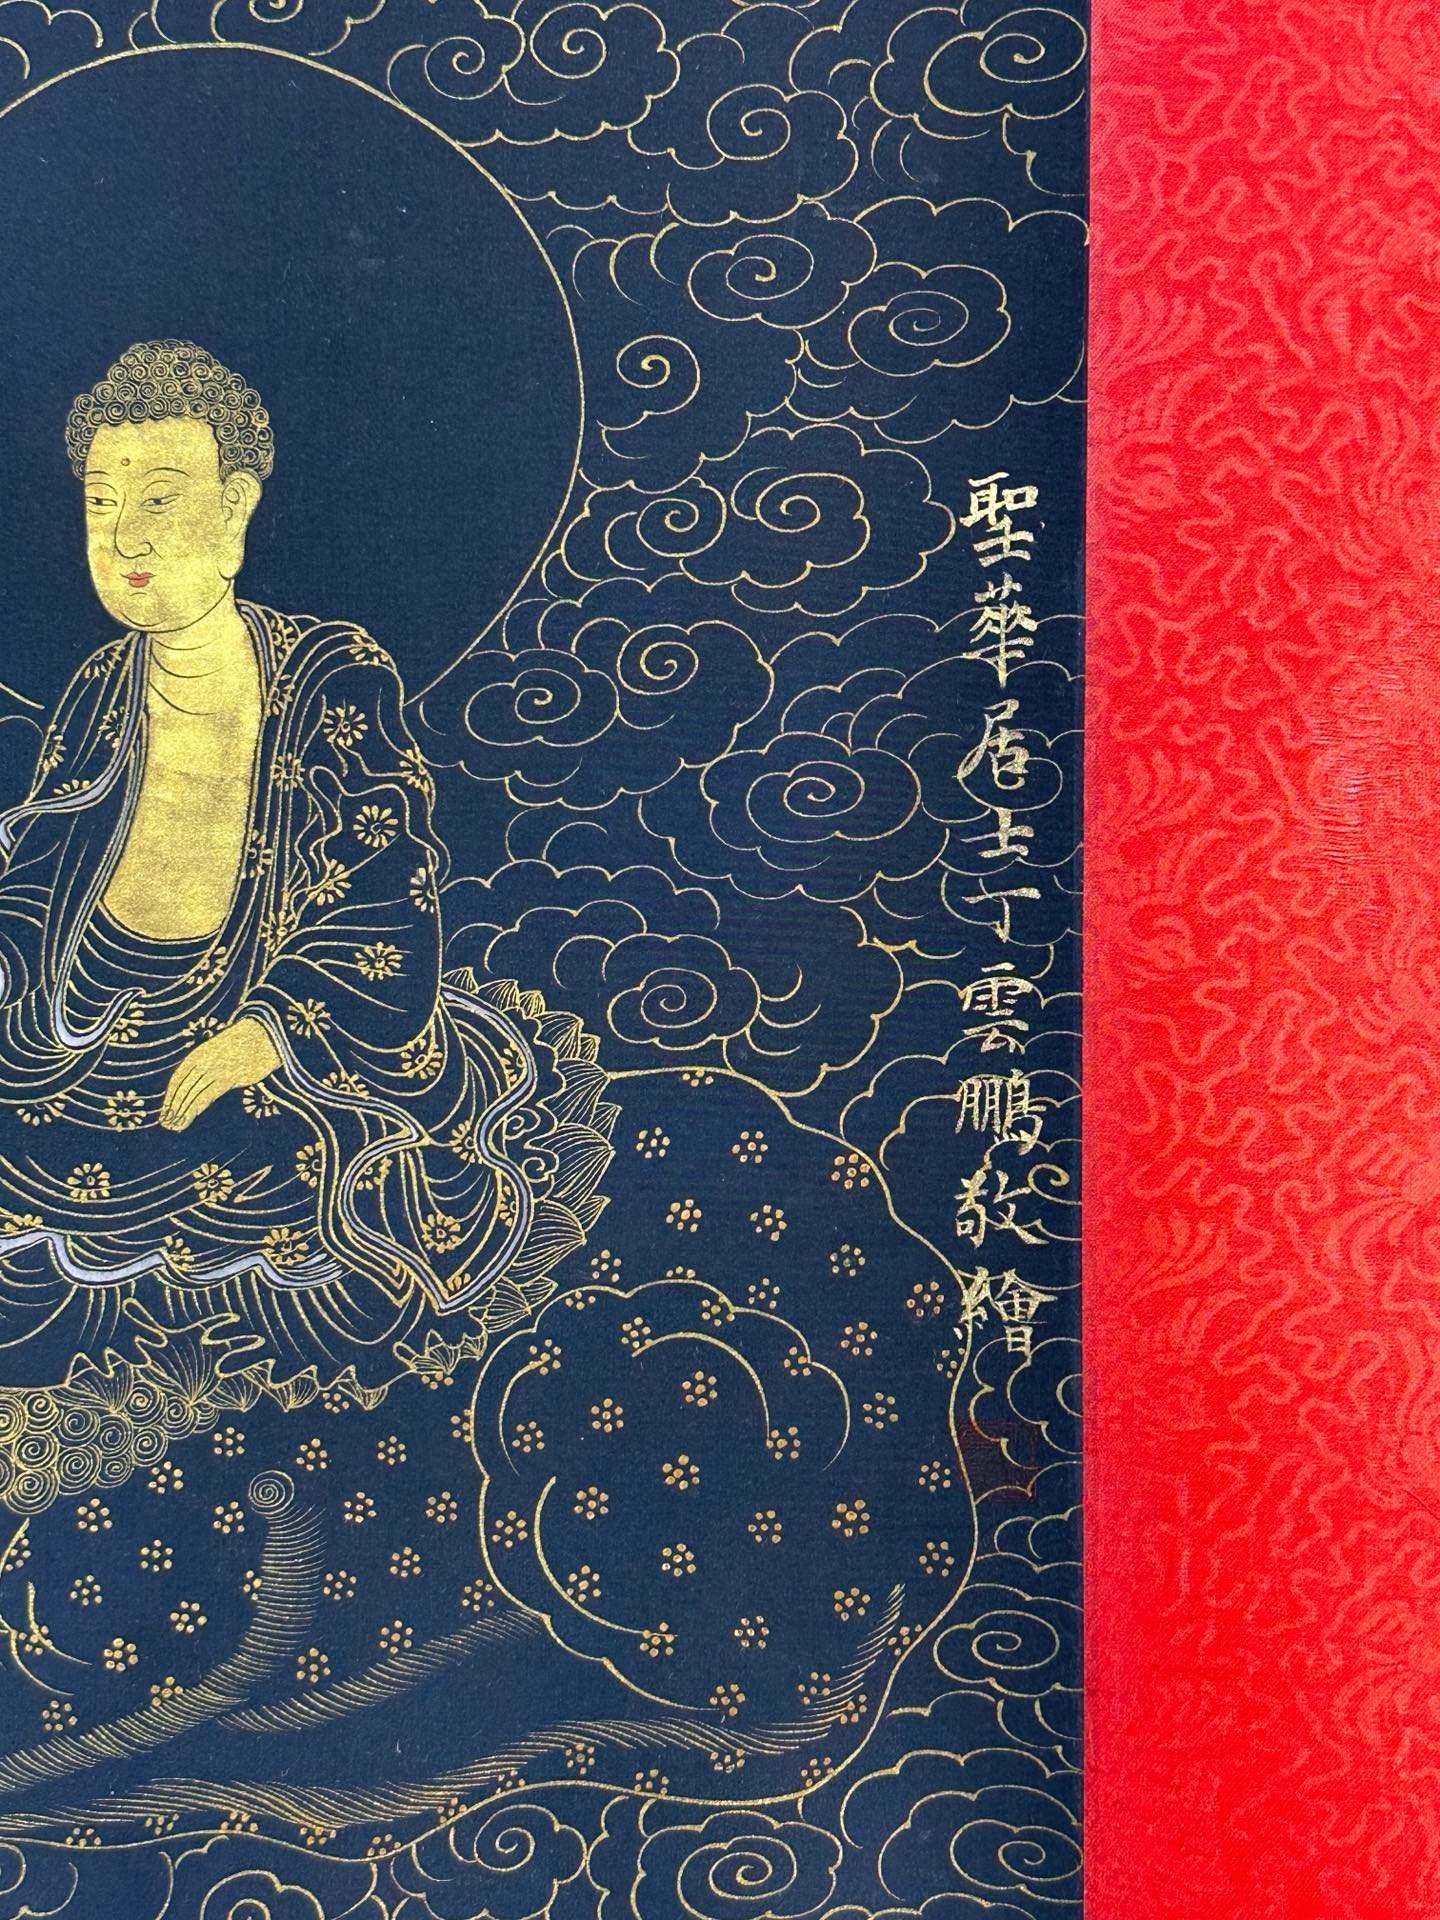 聖華居士丁雲鵬敬繪